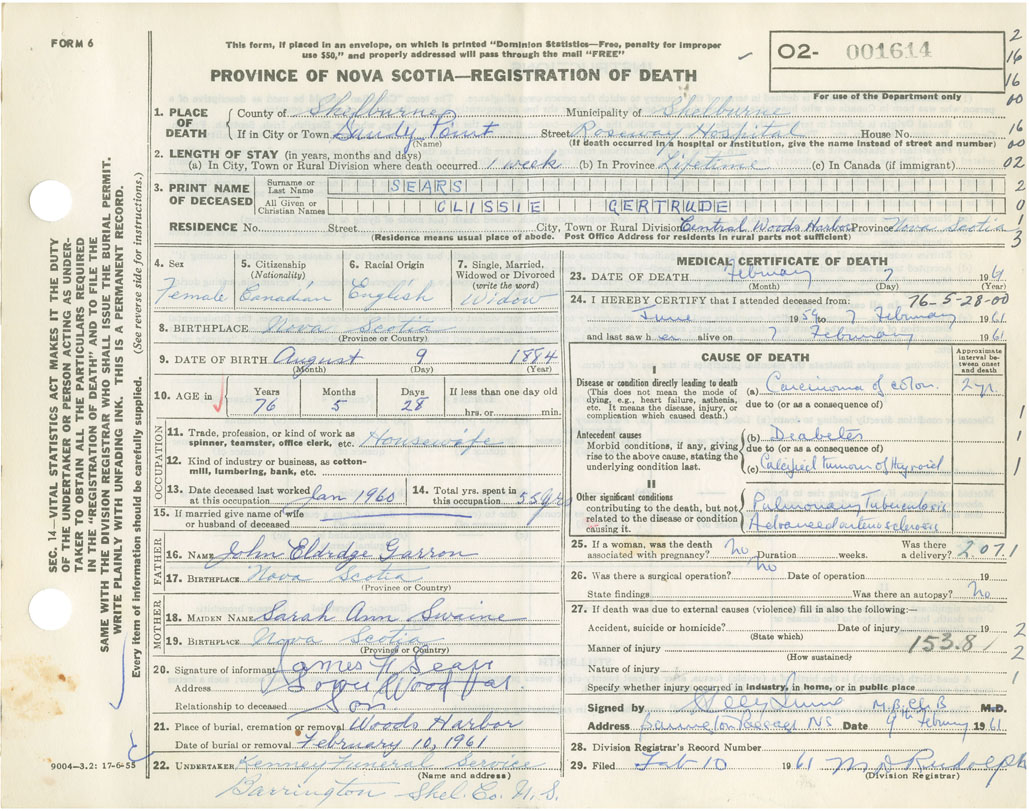 FORM 6
This form, if placed in an envelope, on which is printed "Dominion Statistics—Free, penalty for improper
use $50," and properly addressed will pass through the mail "FREE"
PROVINCE OF NOVA SCOTIA—REGISTRATION OF DEATH
02- 001614
For use of the Department only
2
16
16
00
16
00
02
2
0
1
3
1. PLACE OF DEATH
County of Shelburne Municipality of Shelburne
If in City or Town Sandy Point Street Roseway Hospital House No.
(Name) (If death occurred in a hospital or Institution, give the name instead of street and number)
2. LENGTH OF STAY (in years, months and days)
(a) In City, Town or Rural Division where death occurred 1 week (b) In Province Lifetime (c) In Canada (if immigrant)
3. PRINT NAME OF DECEASED
Surname or Last Name SEARS
All Given or Christian Names CLISSIE GERTRUDE
RESIDENCE No. Street City, Town or Rural Division Central Woods Harbor Province Nova Scotia
(Residence means usual place of abode. Post Office Address for residents in rural parts not sufficient)
SEC. 14—VITAL STATISTICS ACT MAKES IT THE DUTY
OF THE UNDERTAKER OR PERSON ACTING AS UNDER-
TAKER TO OBTAIN ALL THE PARTICULARS REQUIRED
IN THE "REGISTRATION OF DEATH" AND TO FILE THE
SAME WITH THE DIVISION REGISTRAR WHO SHALL ISSUE THE BURIAL PERMIT.
WRITE PLAINLY WITH UNFADING INK. THIS IS A PERMANENT RECORD.
Every item of information should be carefully supplied. (See reverse side for instructions.)
4. Sex Female
5. Citizenship (Nationality) Canadian
6. Racial Origin English
7. Single, Married, Widowed or Divorced (write the word) Widow
8. BIRTHPLACE Nova Scotia
(Province or Country)
9. DATE OF BIRTH August 9 1884
(Month) (Day) (Year)
10. AGE in Years 76 Months 5 Days 28 If less than one day old hrs. or min.
OCCUPATION
11. Trade, profession, or kind of work as spinner, teamster, office clerk, etc. Housewife
12. Kind of industry or business, as cotton-mill, lumbering, bank, etc.
13. Date deceased last worked at this occupation Jan 1960 14. Total yrs. spent in this occupation 55 yrs
15. If married give name of wife or husband of deceased
FATHER
16. NAME John Eldrdge Garron
17. BIRTHPLACE Nova Scotia
(Province or Country)
MOTHER
18. MAIDEN NAME Sarah Ann Swaine
19. BIRTHPLACE Nova Scotia
(Province or Country)
20. Signature of informant James Sears
Address Lower Wood Har.
Relationship to deceased Son
21. Place of burial, cremation or removal Woods Harbor
Date of burial or removal February 10, 1961
22. UNDERTAKER Kenney Funeral Service
(Name and address)
Barrington Shel. Co. N. S.
9004-3.2: 17-6-55
MEDICAL CERTIFICATE OF DEATH
23. DATE OF DEATH February 7 1961
(Month) (Day) (Year)
24. I HEREBY CERTIFY that I attended deceased from: 76-5-28-00
June 1959 to 7 February 1961
and last saw her alive on 7 February 1961
CAUSE OF DEATH
Approximate interval between onset and death
I
Disease or condition directly leading to death
(This does not mean the mode of dying, e.g., heart failure, asthenia, etc. It means the disease, injury, or complication which caused death.)
(a) Carcinoma of colon. 2 yr.
due to (or as a consequence of)
Antecedent causes
Morbid conditions, if any, giving rise to the above cause, stating the underlying condition last.
(b) Diabetes
due to (or as a consequence of)
(c) Calcified tumour of thyroid
II
Other significant conditions
contributing to the death, but not related to the disease or condition causing it.
Pulmonary Tuberculosis
Advanced arteriosclerosis
1
1
1
25. If a woman, was the death associated with pregnancy? No Duration weeks. Was there a delivery? 2071
26. Was there a surgical operation? No Date of operation 19
State findings Was there an autopsy? No
27. If death was due to external causes (violence) fill in also the following:—
Accident, suicide or homicide? Date of injury 19
(State which)
Manner of injury 153.8
(How sustained)
Nature of injury
Specify whether injury occurred in industry, in home, or in public place
2
2
1
Signed by M.B. Ch.B M.D.
Address Barrington Passage NS Date 9th February 1961
28. Division Registrar's Record Number
29. Filed Feb 10 1961 M D Rudolph
(Division Registrar)